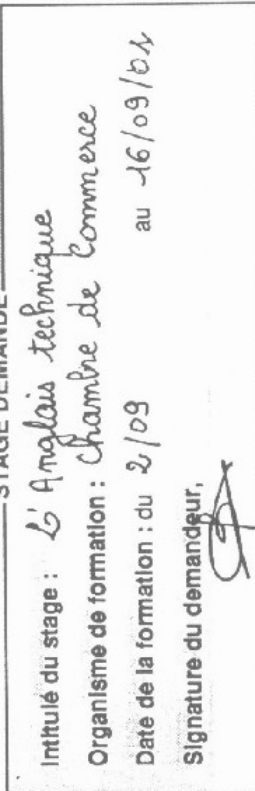 STAGE DEMANDE
Intitulé du stage : L'Anglais technique
Organisme de formation : Chambre de Commerce
Date de la formation : du 2/09 au 16/09/01
Signature du demandeur,